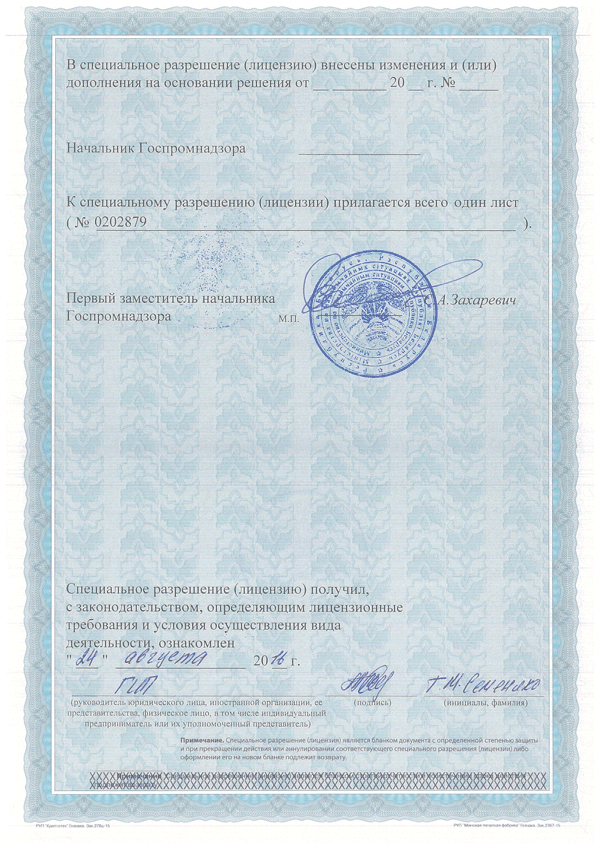 В специальное разрешение (лицензию) внесены изменения и (или)
дополнения на основании решения от __ _______ 20 __ г. № _____
Начальник Госпромнадзора ________________
К специальному разрешению (лицензии) прилагается всего один лист
( № 0202879 ).
Первый заместитель начальника
Госпромнадзора М.П. А.Захаревич
Специальное разрешение (лицензию) получил,
с законодательством, определяющим лицензионные
требования и условия осуществления вида
деятельности, ознакомлен
" 24 " августа 2016 г.
ГИП
(руководитель юридического лица, иностранной организации, ее
представительства, физическое лицо, в том числе индивидуальный
предприниматель или их уполномоченный представитель)
(подпись)
(инициалы, фамилия)
Примечание. Специальное разрешение (лицензия) является бланком документа с определенной степенью защиты
и при прекращении действия или аннулировании соответствующего специального разрешения (лицензии) либо
оформлении его на новом бланке подлежит возврату.